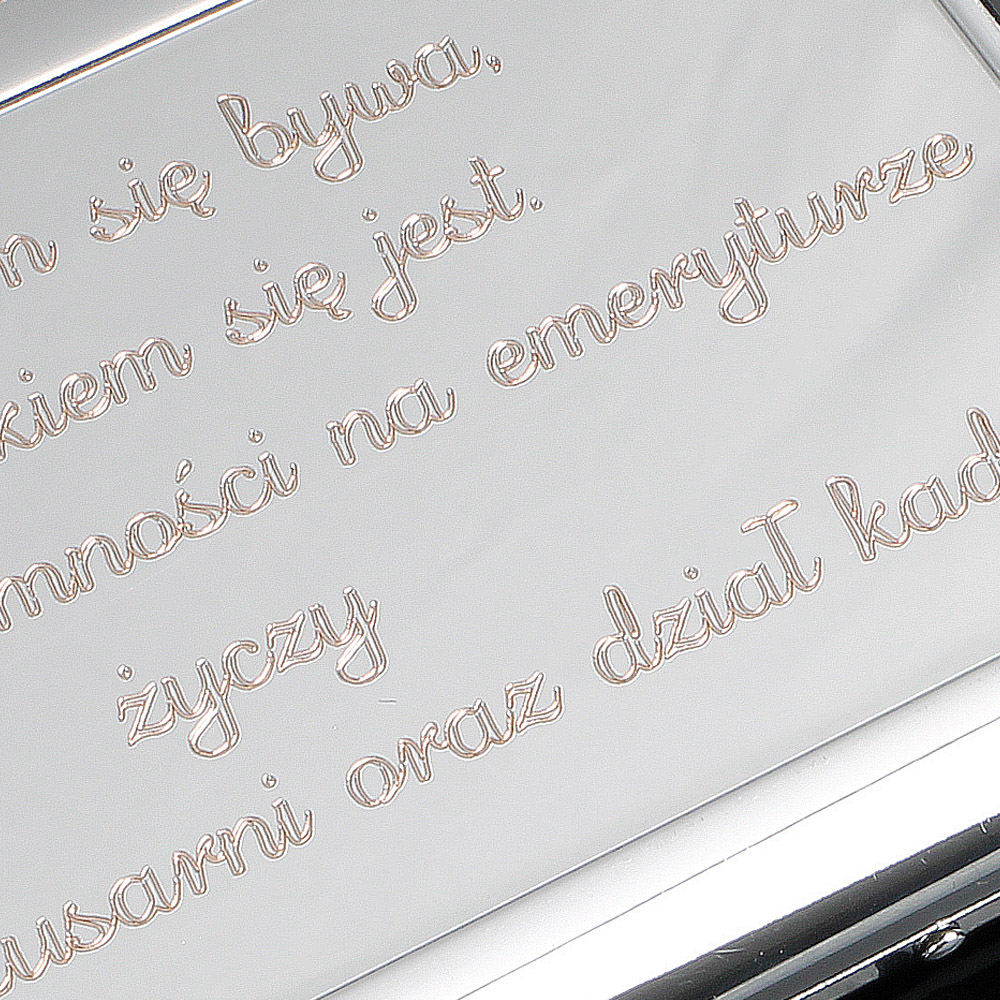 n się bywa,
kiem się jest.
mności na emeryturze
życzy
usarni oraz dział kad